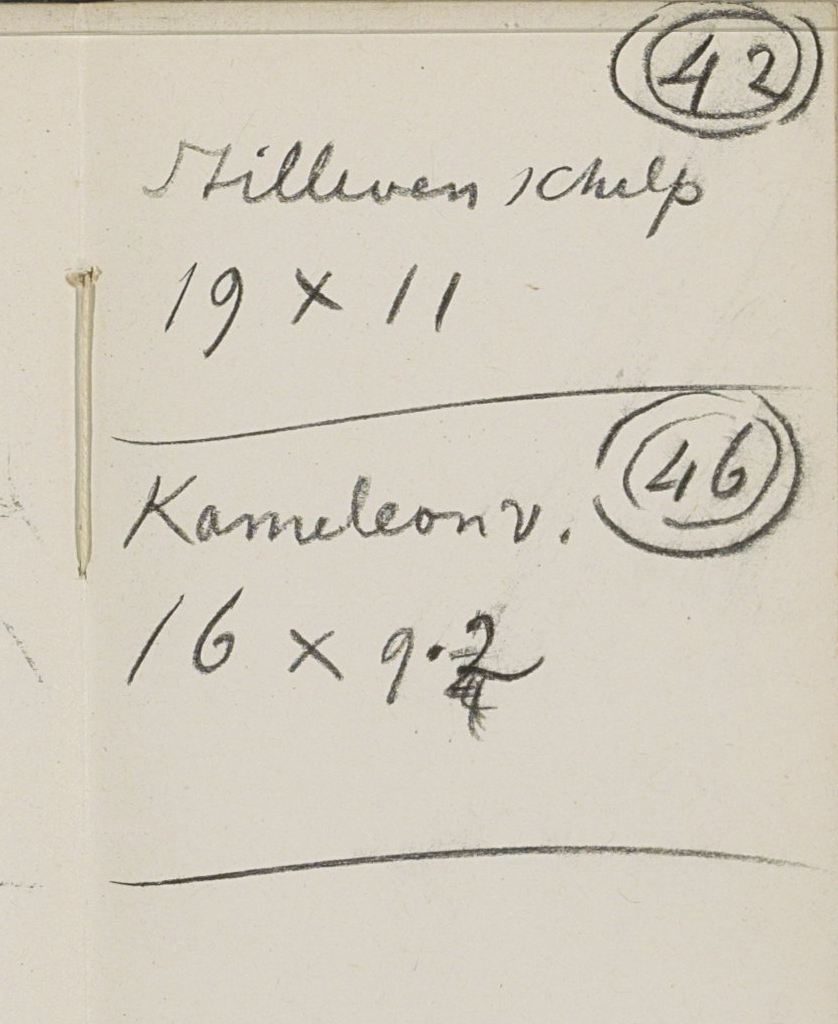 42
Stilleven schelp
19 x 11
46
Kameleon v.
16 x 9.2